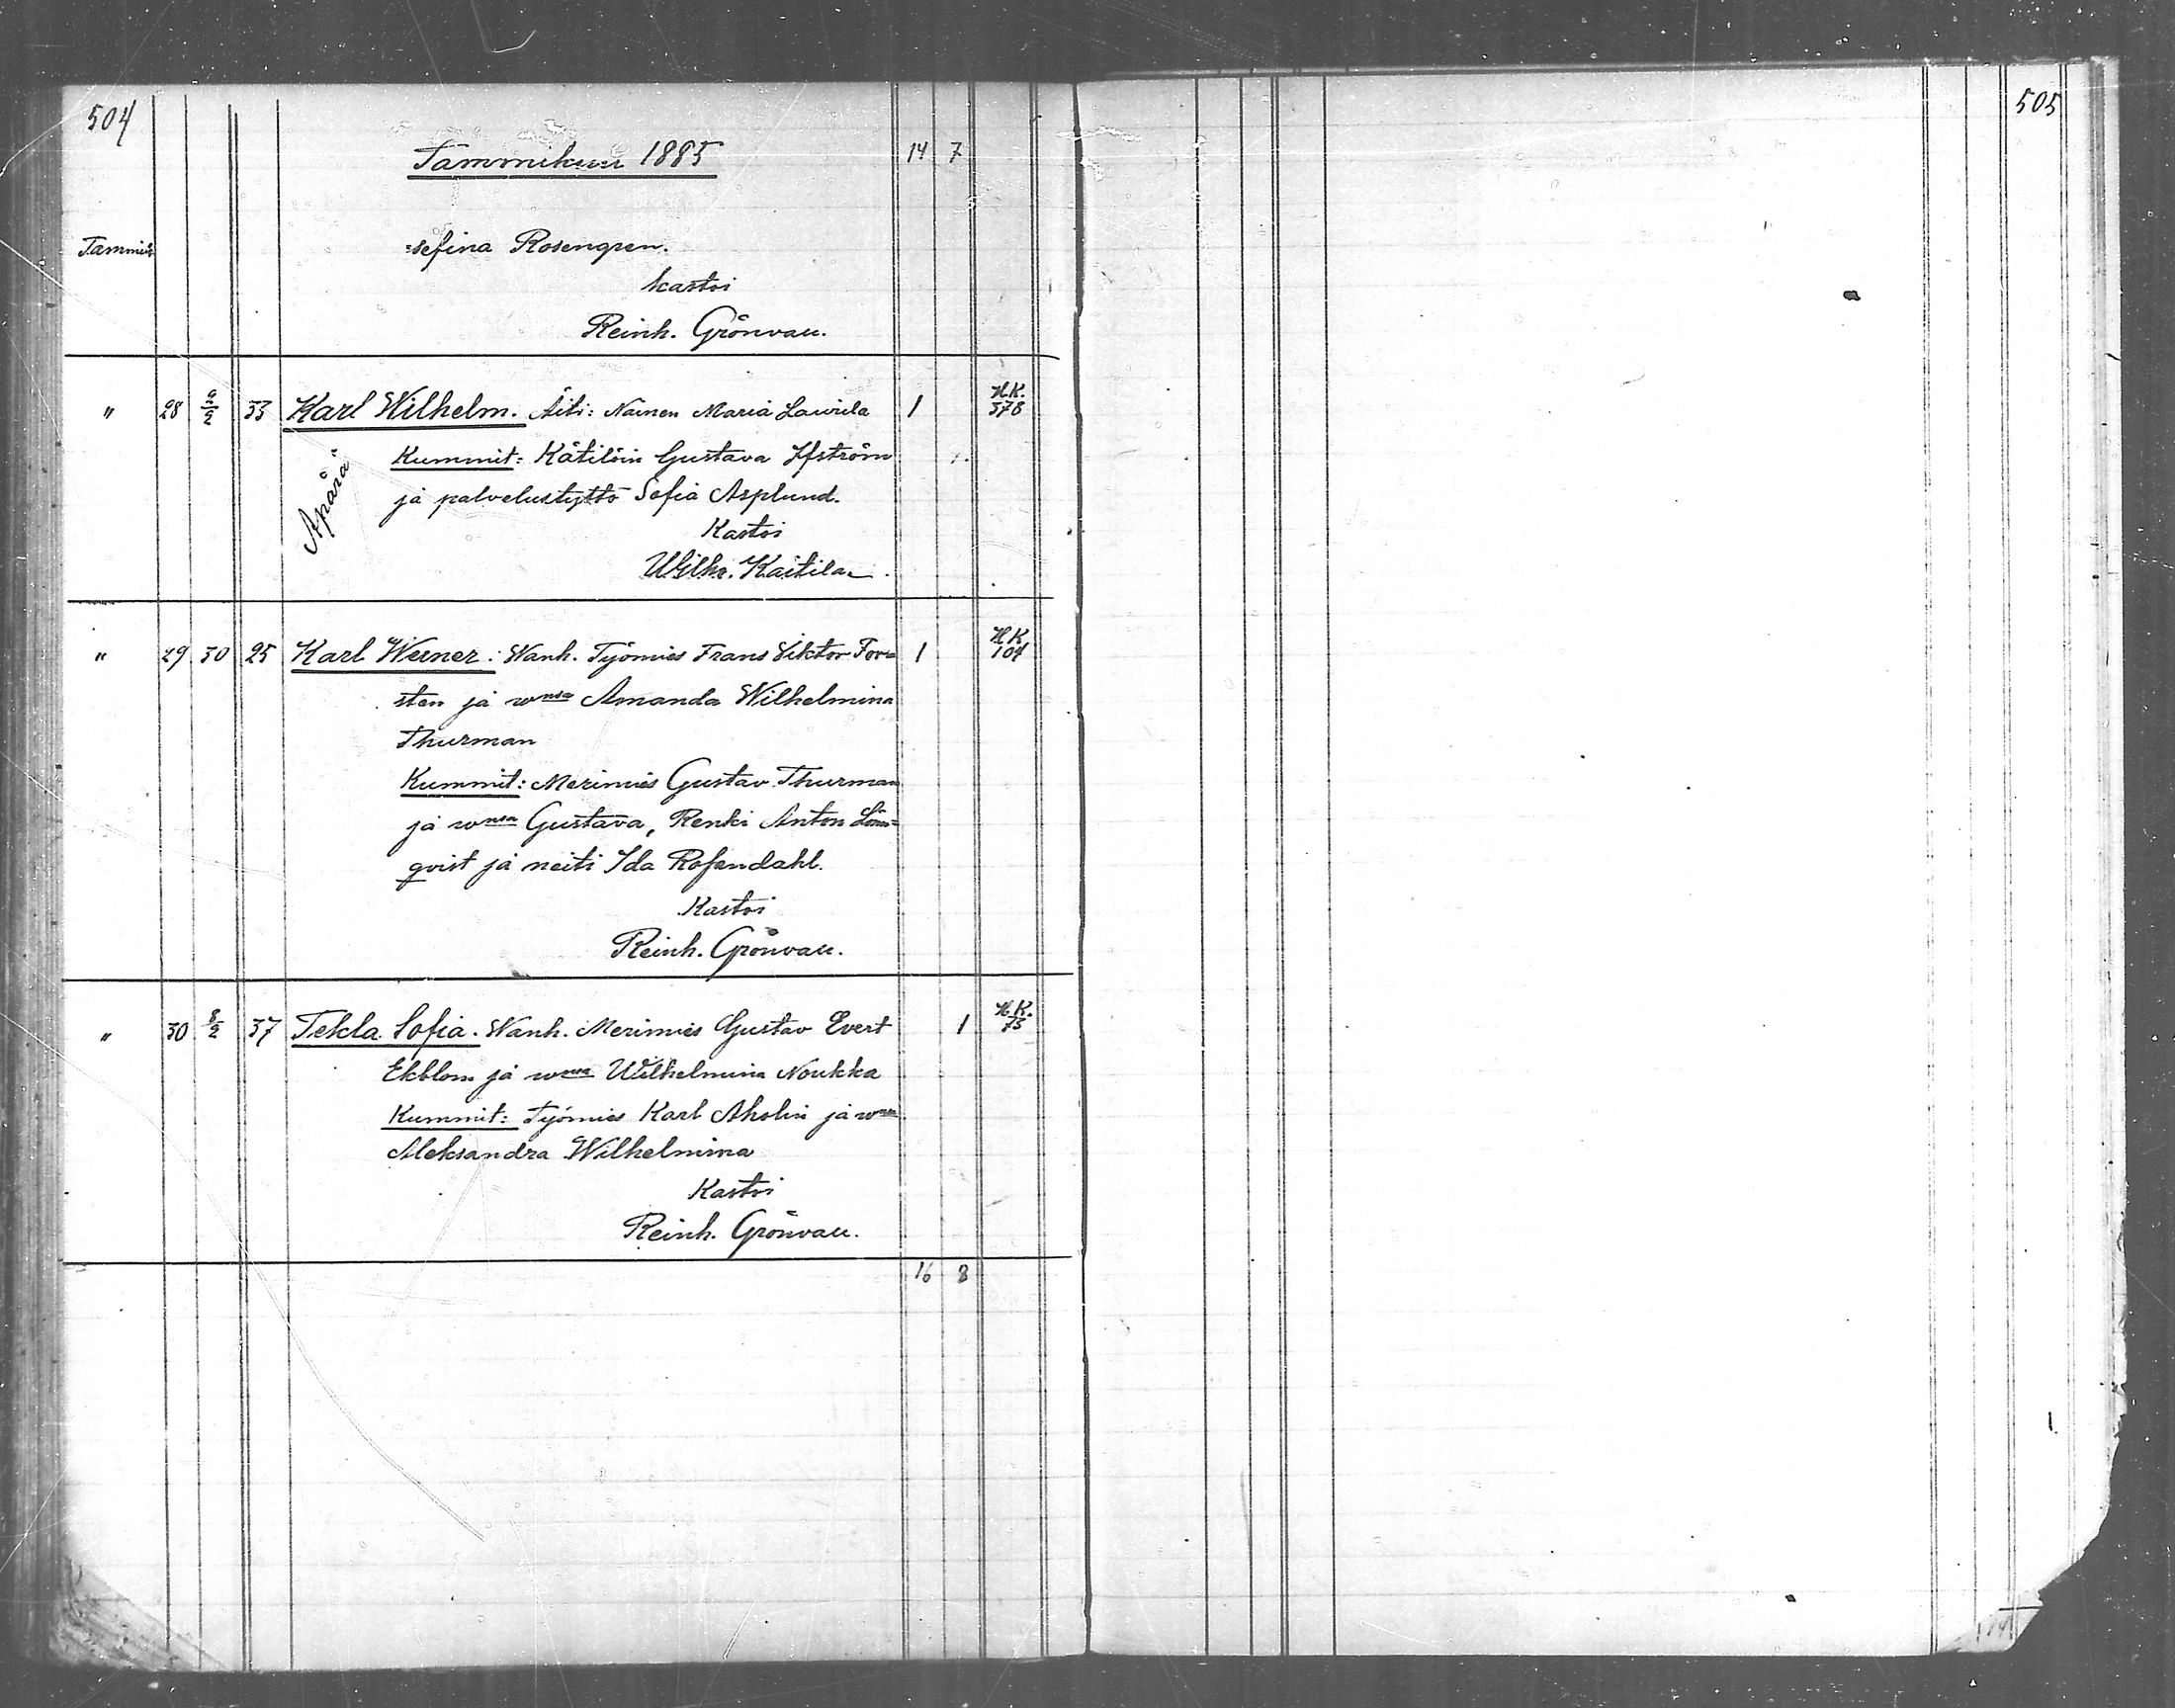 504
505
Tammikuu 1885 14 7
Tammik
=sefina Rosengren.
kastoi
Reinh. Grönvall.
" 28 9/2 33 Karl Wilhelm. Äiti: Nainen Maria Lauvila 1 H.K. 378
Kummit: Kätilöin Gustava Ifström
ja palvelustyttö Sofia Asplund.
Äpärä
Kastoi
Wilh. Kaitila.
" 29 30 25 Karl Werner: Wanh. Työmies Frans Viktor For= 1 H.K. 104
sten ja wnsa Amanda Wilhelmina
Thurman
Kummit: Merimies Gustav Thurman
ja wnsa Gustava, Renki Anton Lön=
qvist ja neiti Ida Rosendahl.
Kastoi
Reinh. Grönvall.
" 30 8/2 37 Tekla Sofia. Wanh. Merimies Gustav Evert 1 H.K. 73
Ekblom ja wnsa Wilhelmina Noukka
Kummit: Työmies Karl Aholin ja wnsa
Aleksandra Wilhelmina
Kastoi
Reinh. Grönvall.
16 8